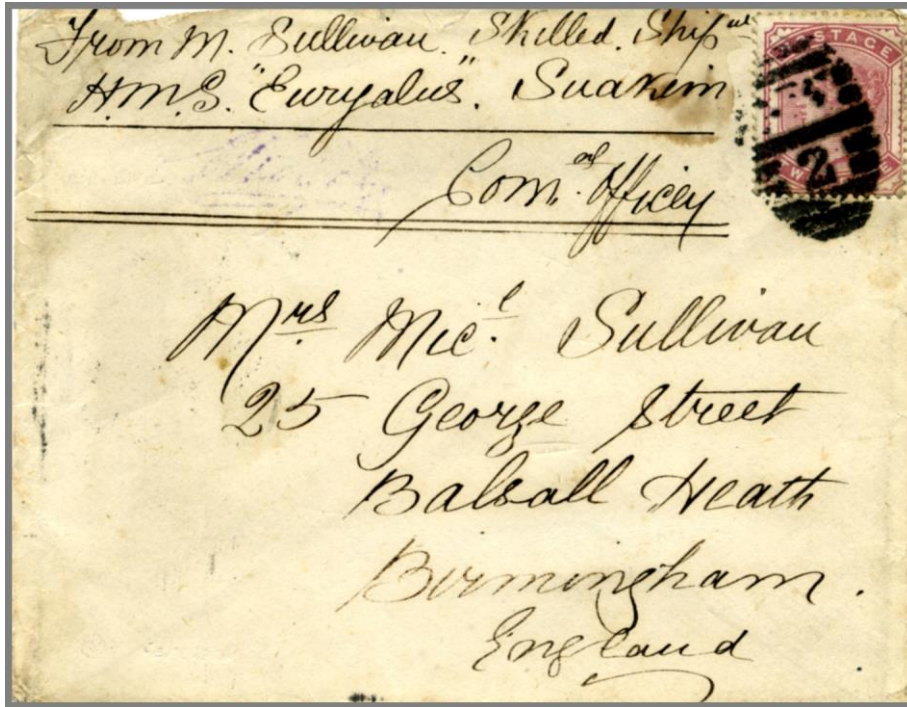 From M. Sullivan. Skilled. Ship^wt
H.M.S. "Euryalus". Suakim
POSTAGE
2
Com^.g Officer
Mrs Mic^l. Sullivan
25 George Street
Balsall Heath
Birmingham.
England